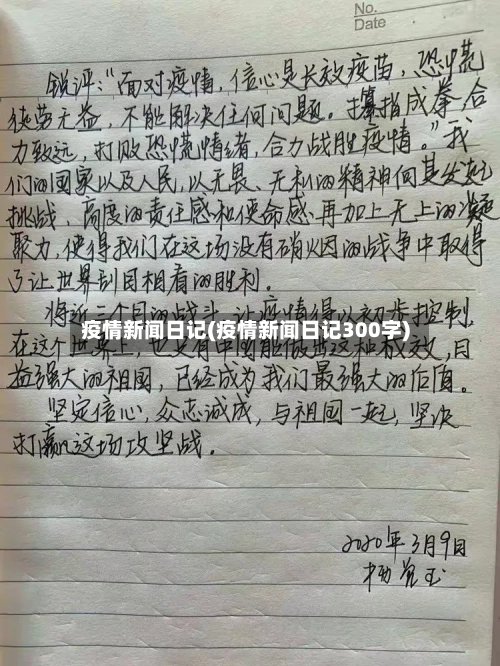 No.
Date
锐评:“面对疫情,信心是长效疫苗,恐慌
徒劳无益,不能解决任何问题。攥指成拳,合
力致远,打败恐慌情绪,合力战胜疫情。”我
们的国家以及人民,以无畏、无私的精神向其发起
挑战,高度的责任感和使命感,再加上无上的凝
聚力,使得我们在这场没有硝烟的战争中取得
了让世界刮目相看的胜利。
将近三个月的战斗,让疫情得以初步控制,
疫情新闻日记(疫情新闻日记300字)
在这个世界上,也只有中国能做出这种成效,日
益强大的祖国,已经成为我们最强大的后盾。
坚定信心,众志诚成,与祖国一起,坚决
打赢这场攻坚战。
2020年3月9日